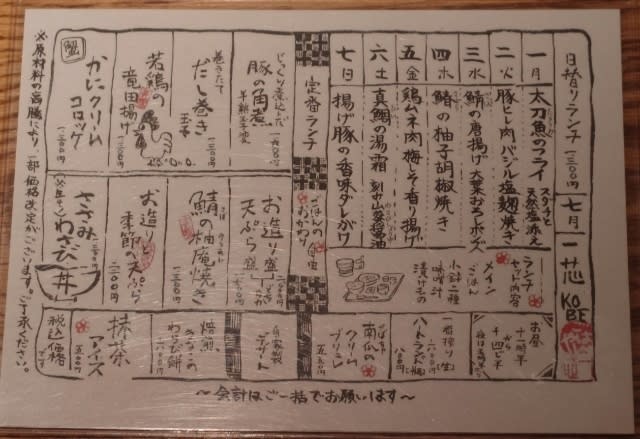 日替りランチ 一三〇〇円 七月 一芯 KOBE
一月 太刀魚のフライ スダチと天然塩添え
二火 豚こし肉バジル塩麹焼き
三水 鯖の唐揚げ 大葉おろしポンズ
四木 鰆の柚子胡椒焼き
五金 鶏ムネ肉 梅しそ香り揚げ
六土 真鯛の湯霜 刻み山葵醤油
七日 揚げ豚の香味ダレがけ
ランチセット内容
メイン
ごはん
小鉢二種
味噌汁
漬けもの
定番ランチ
ごはんのおかわり自由
じっくり煮込んだ
豚の角煮
半熟玉子
一六〇〇円
巻きたて
だし巻き
玉子
一三〇〇円
若鶏の
竜田揚げ
一三〇〇円
蟹
かにクリーム
コロッケ
一三〇〇円
お造り盛
天ぷら盛
二三〇〇円
鯖の柚庵焼き
一三〇〇円
お造りと
季節の天ぷら
二二〇〇円
ささみ
わさび丼
お昼
十一時半
から
十四時半
一番搾り(生)
六〇〇円
ハートランド(瓶)
八〇〇円
南瓜の
クリーム
ブリュレ
五五〇円
自家製
プリン
焙煎
きなこの
わらび餅
抹茶
アイス
五〇〇円
税込価格
です
〜会計はご一括でお願いします〜
※原材料の高騰により、一部価格改定がございます。ご了承ください。